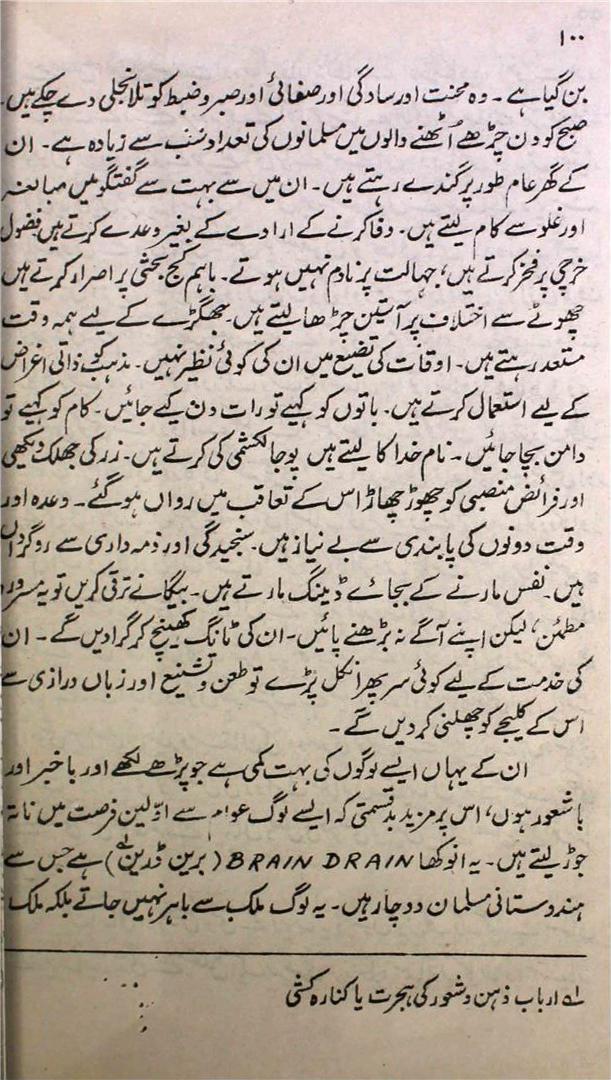 ۱۰۰
بن گیا ہے ۔ وہ محنت اور سادگی اور صفائی اور صبر و ضبط کو تلانجلی دے چکے ہیں۔
صبح کو دن چڑھے اُٹھنے والوں میں مسلمانوں کی تعداد سب سے زیادہ ہے ۔ ان
کے گھر عام طور پر گندے رہتے ہیں ۔ ان میں سے بہت سے گفتگو میں مبالغہ
اور غلو سے کام لیتے ہیں۔ وفا کرنے کے ارادے کے بغیر وعدے کرتے ہیں، فضول
خرچی پر فخر کرتے ہیں، جہالت پر نادم نہیں ہوتے۔ باہم کج بحثی پر اصرار کرتے ہیں
چھوٹے سے اختلاف پر آستین چڑھا لیتے ہیں۔ جھگڑے کے لیے ہمہ وقت
مستعد رہتے ہیں۔ اوقات کی تضیع میں ان کی کوئی نظیر نہیں۔ مذہب کو ذاتی اغراض
کے لیے استعمال کرتے ہیں۔ باتوں کو کہیے تو رات دن کیے جائیں۔ کام کو کہیے تو
دامن بچا جائیں ۔ نام خدا کا لیتے ہیں پوجا لکشمی کی کرتے ہیں۔ زر کی جھلک دیکھی
اور فرائض منصبی کو چھوڑ چھاڑ اس کے تعاقب میں رواں ہو گئے۔ وعدہ اور
وقت دونوں کی پابندی سے بے نیاز ہیں۔ سنجیدگی اور ذمہ داری سے روگرداں
ہیں۔ نفس مارنے کے بجائے ڈینگ مارتے ہیں۔ بیگانے ترقی کریں تو یہ مسرور
مطمئن، لیکن اپنے آگے نہ بڑھنے پائیں۔ ان کی ٹانگ کھینچ کر گرا دیں گے ۔ ان
کی خدمت کے لیے کوئی سرپھرا نکل پڑے تو طعن و تشنیع اور زباں درازی سے
اس کے کلیجے کو چھلنی کر دیں گے ۔
ان کے یہاں ایسے لوگوں کی بہت کمی ہے جو پڑھے لکھے اور باخبر اور
باشعور ہوں، اس پر مزید بدقسمتی کہ ایسے لوگ عوام سے اوّلین فرصت میں ناتہ
توڑ لیتے ہیں۔ یہ انوکھا BRAIN DRAIN (برین ڈرین)؂۱ ہے جس سے
ہندوستانی مسلمان دوچار ہیں۔ یہ لوگ ملک سے باہر نہیں جاتے بلکہ ملک
؂۱ ارباب ذہن و شعور کی ہجرت یا کنارہ کشی